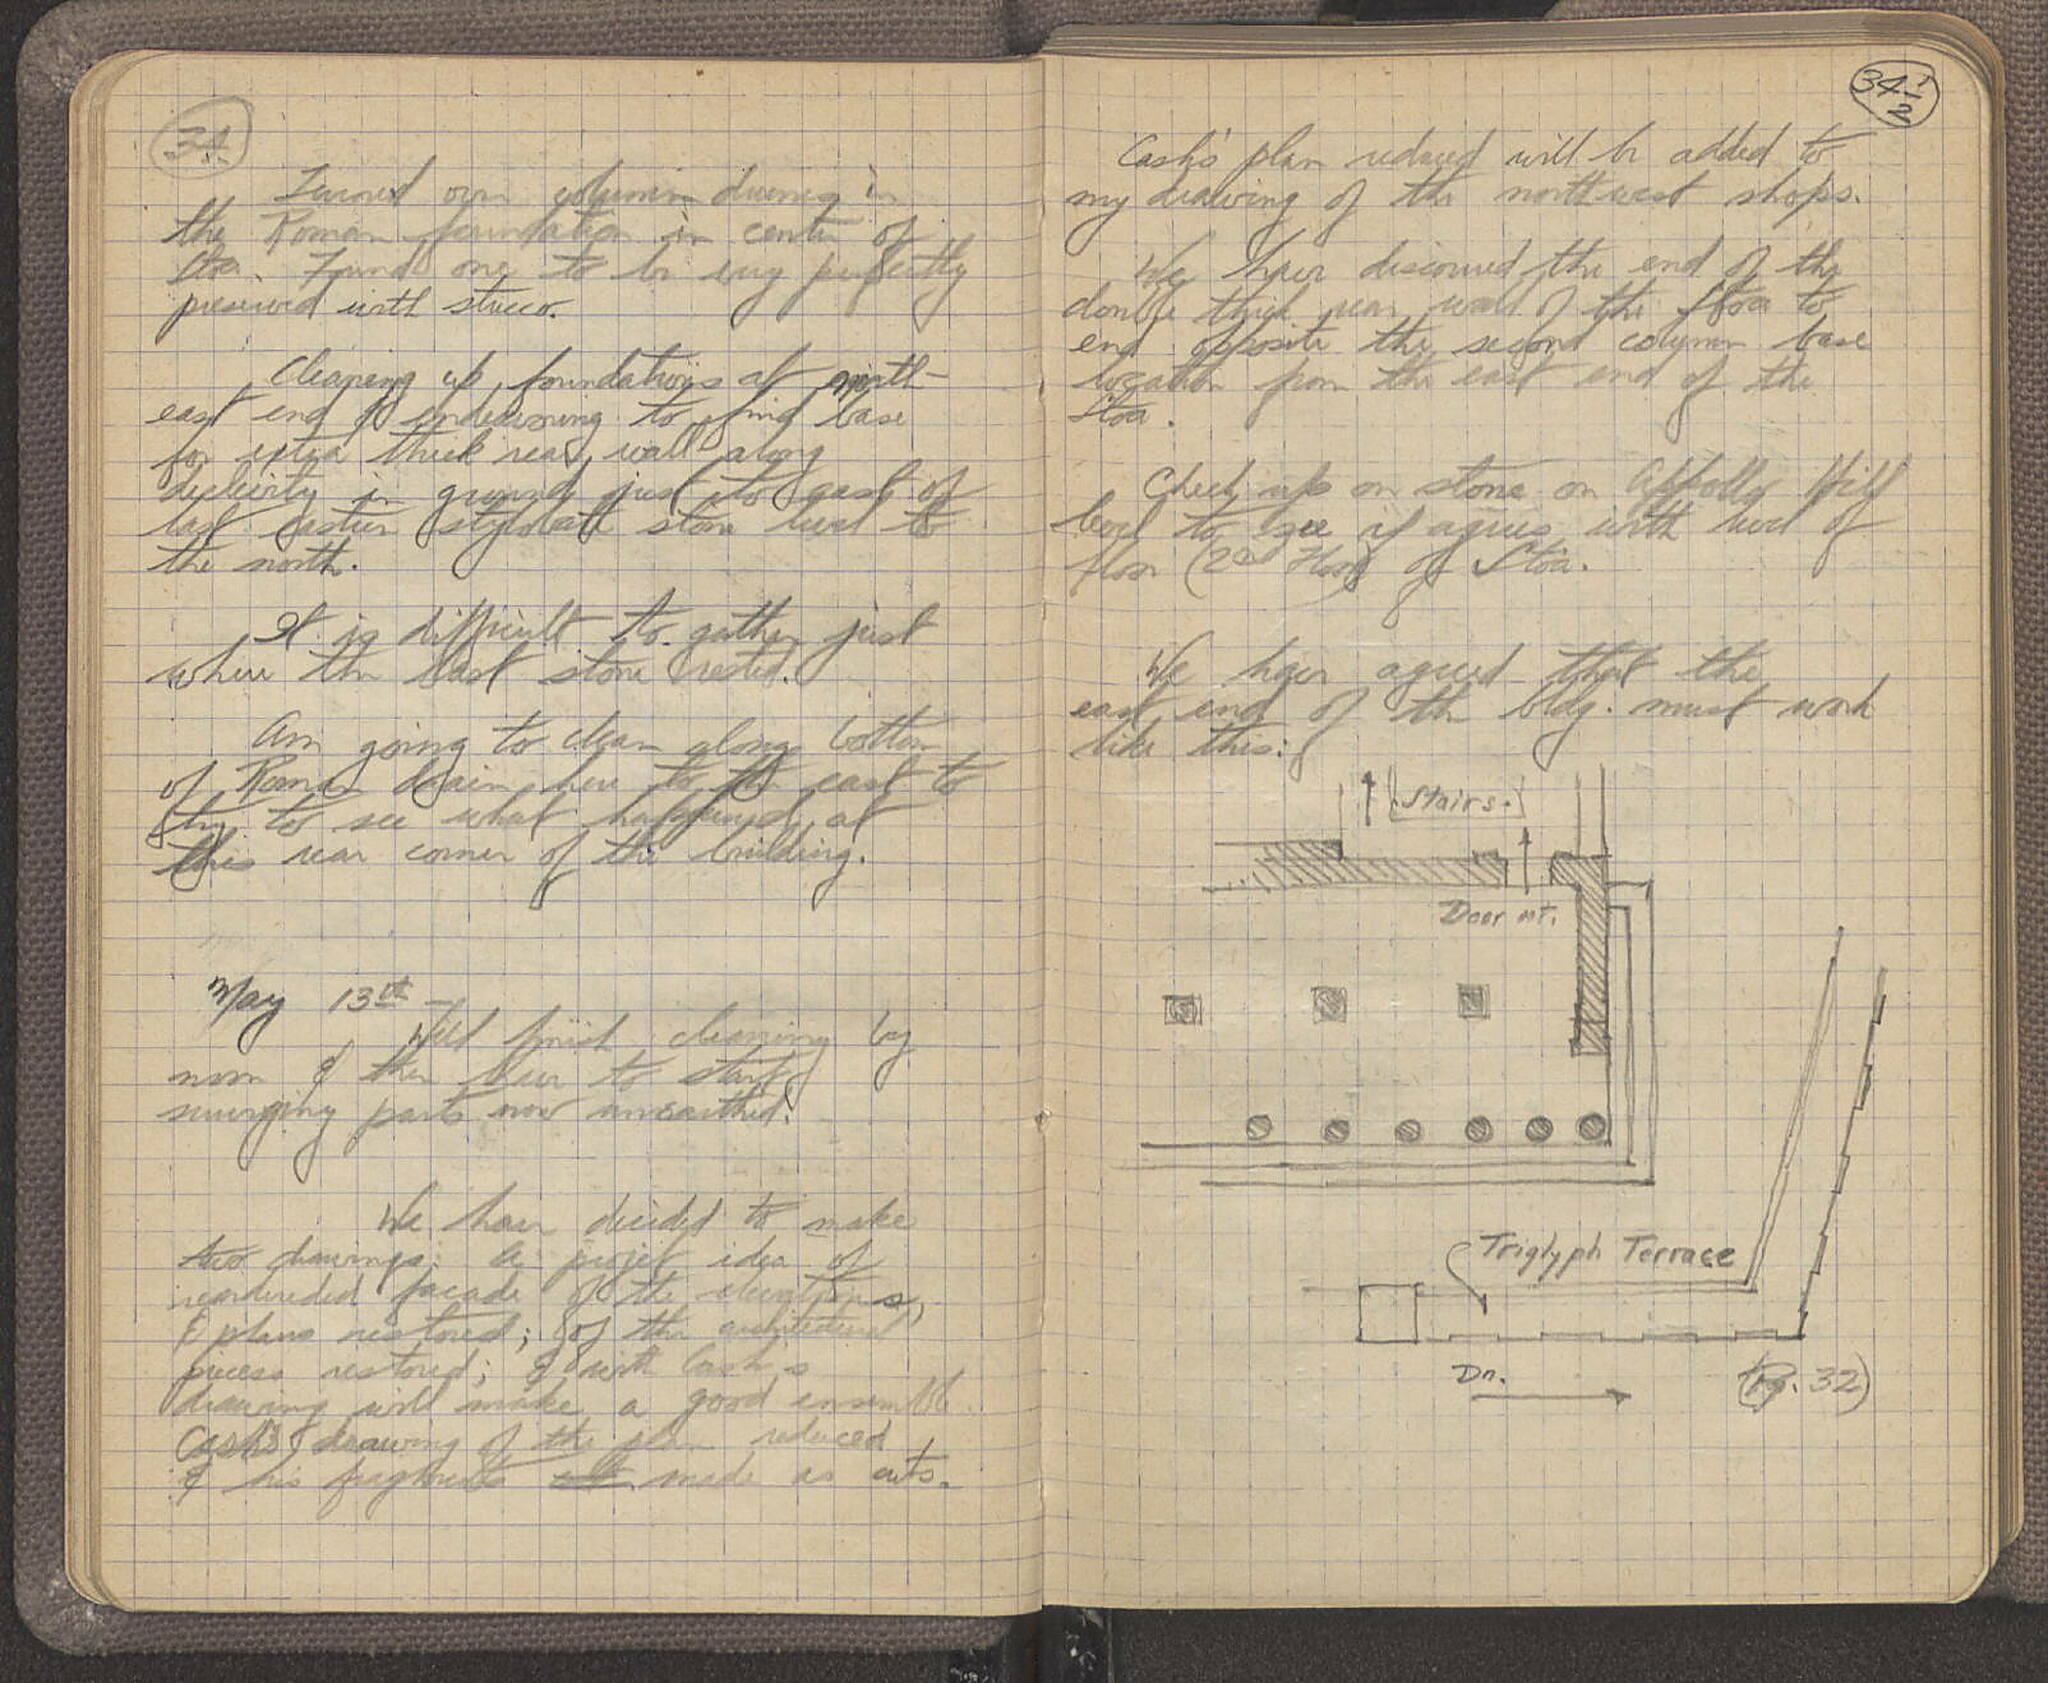 34
Turned over column drums in
the Roman foundation in center of
Stoa. Found one to be very perfectly
preserved with stucco.
Cleaning up foundations at north-
east end & endeavoring to find base
for extra thick rear wall along
declivity in ground just to east of
last eastern stylobate stone level to
the north.
It is difficult to gather just
where the last stone rested.
Am going to clean along bottom
of Roman drain here to the east to
try to see what happened at
this rear corner of the building.
May 13th
Will finish cleaning by
noon & then have to start
surveying parts now unearthed.
We have decided to make
two drawings: A projet idea of
facade of the elevations,
& plans restored; of the architectural
pieces restored; & with Cash's
drawing will make a good ensemble.
Cash's drawing of the plan reduced
& his fragments made as cuts.
34 1/2
Cash's plan reduced will be added to
my drawing of the northwest shops.
We have discovered the end of the
double thick rear wall of the Stoa to
end opposite the second column base
location from the east end of the
Stoa.
Check up on stone on Apollo Hill
level to see if agrees with level of
floor (2nd Floor) of Stoa.
We have agreed that the
east end of the bldg. must work
like this:
Stairs.
Door nt.
Triglyph Terrace
Dn.
(Pg. 32)